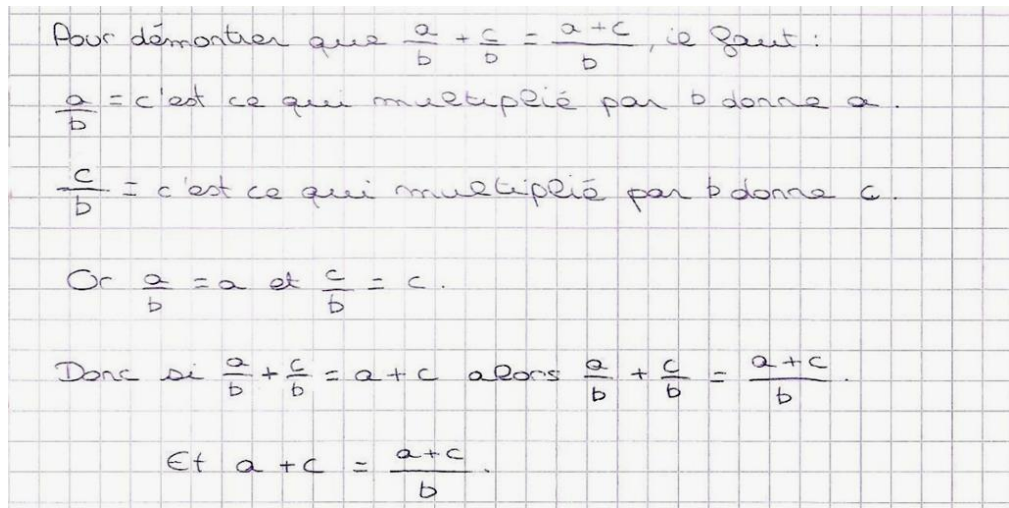 Pour démontrer que a/b + c/b = a+c/b, il faut :
a/b = c'est ce qui multiplié par b donne a.
c/b = c'est ce qui multiplié par b donne c.
Or a/b = a et c/b = c.
Donc si a/b + c/b = a + c alors a/b + c/b = a+c/b.
Et a + c = a+c/b.